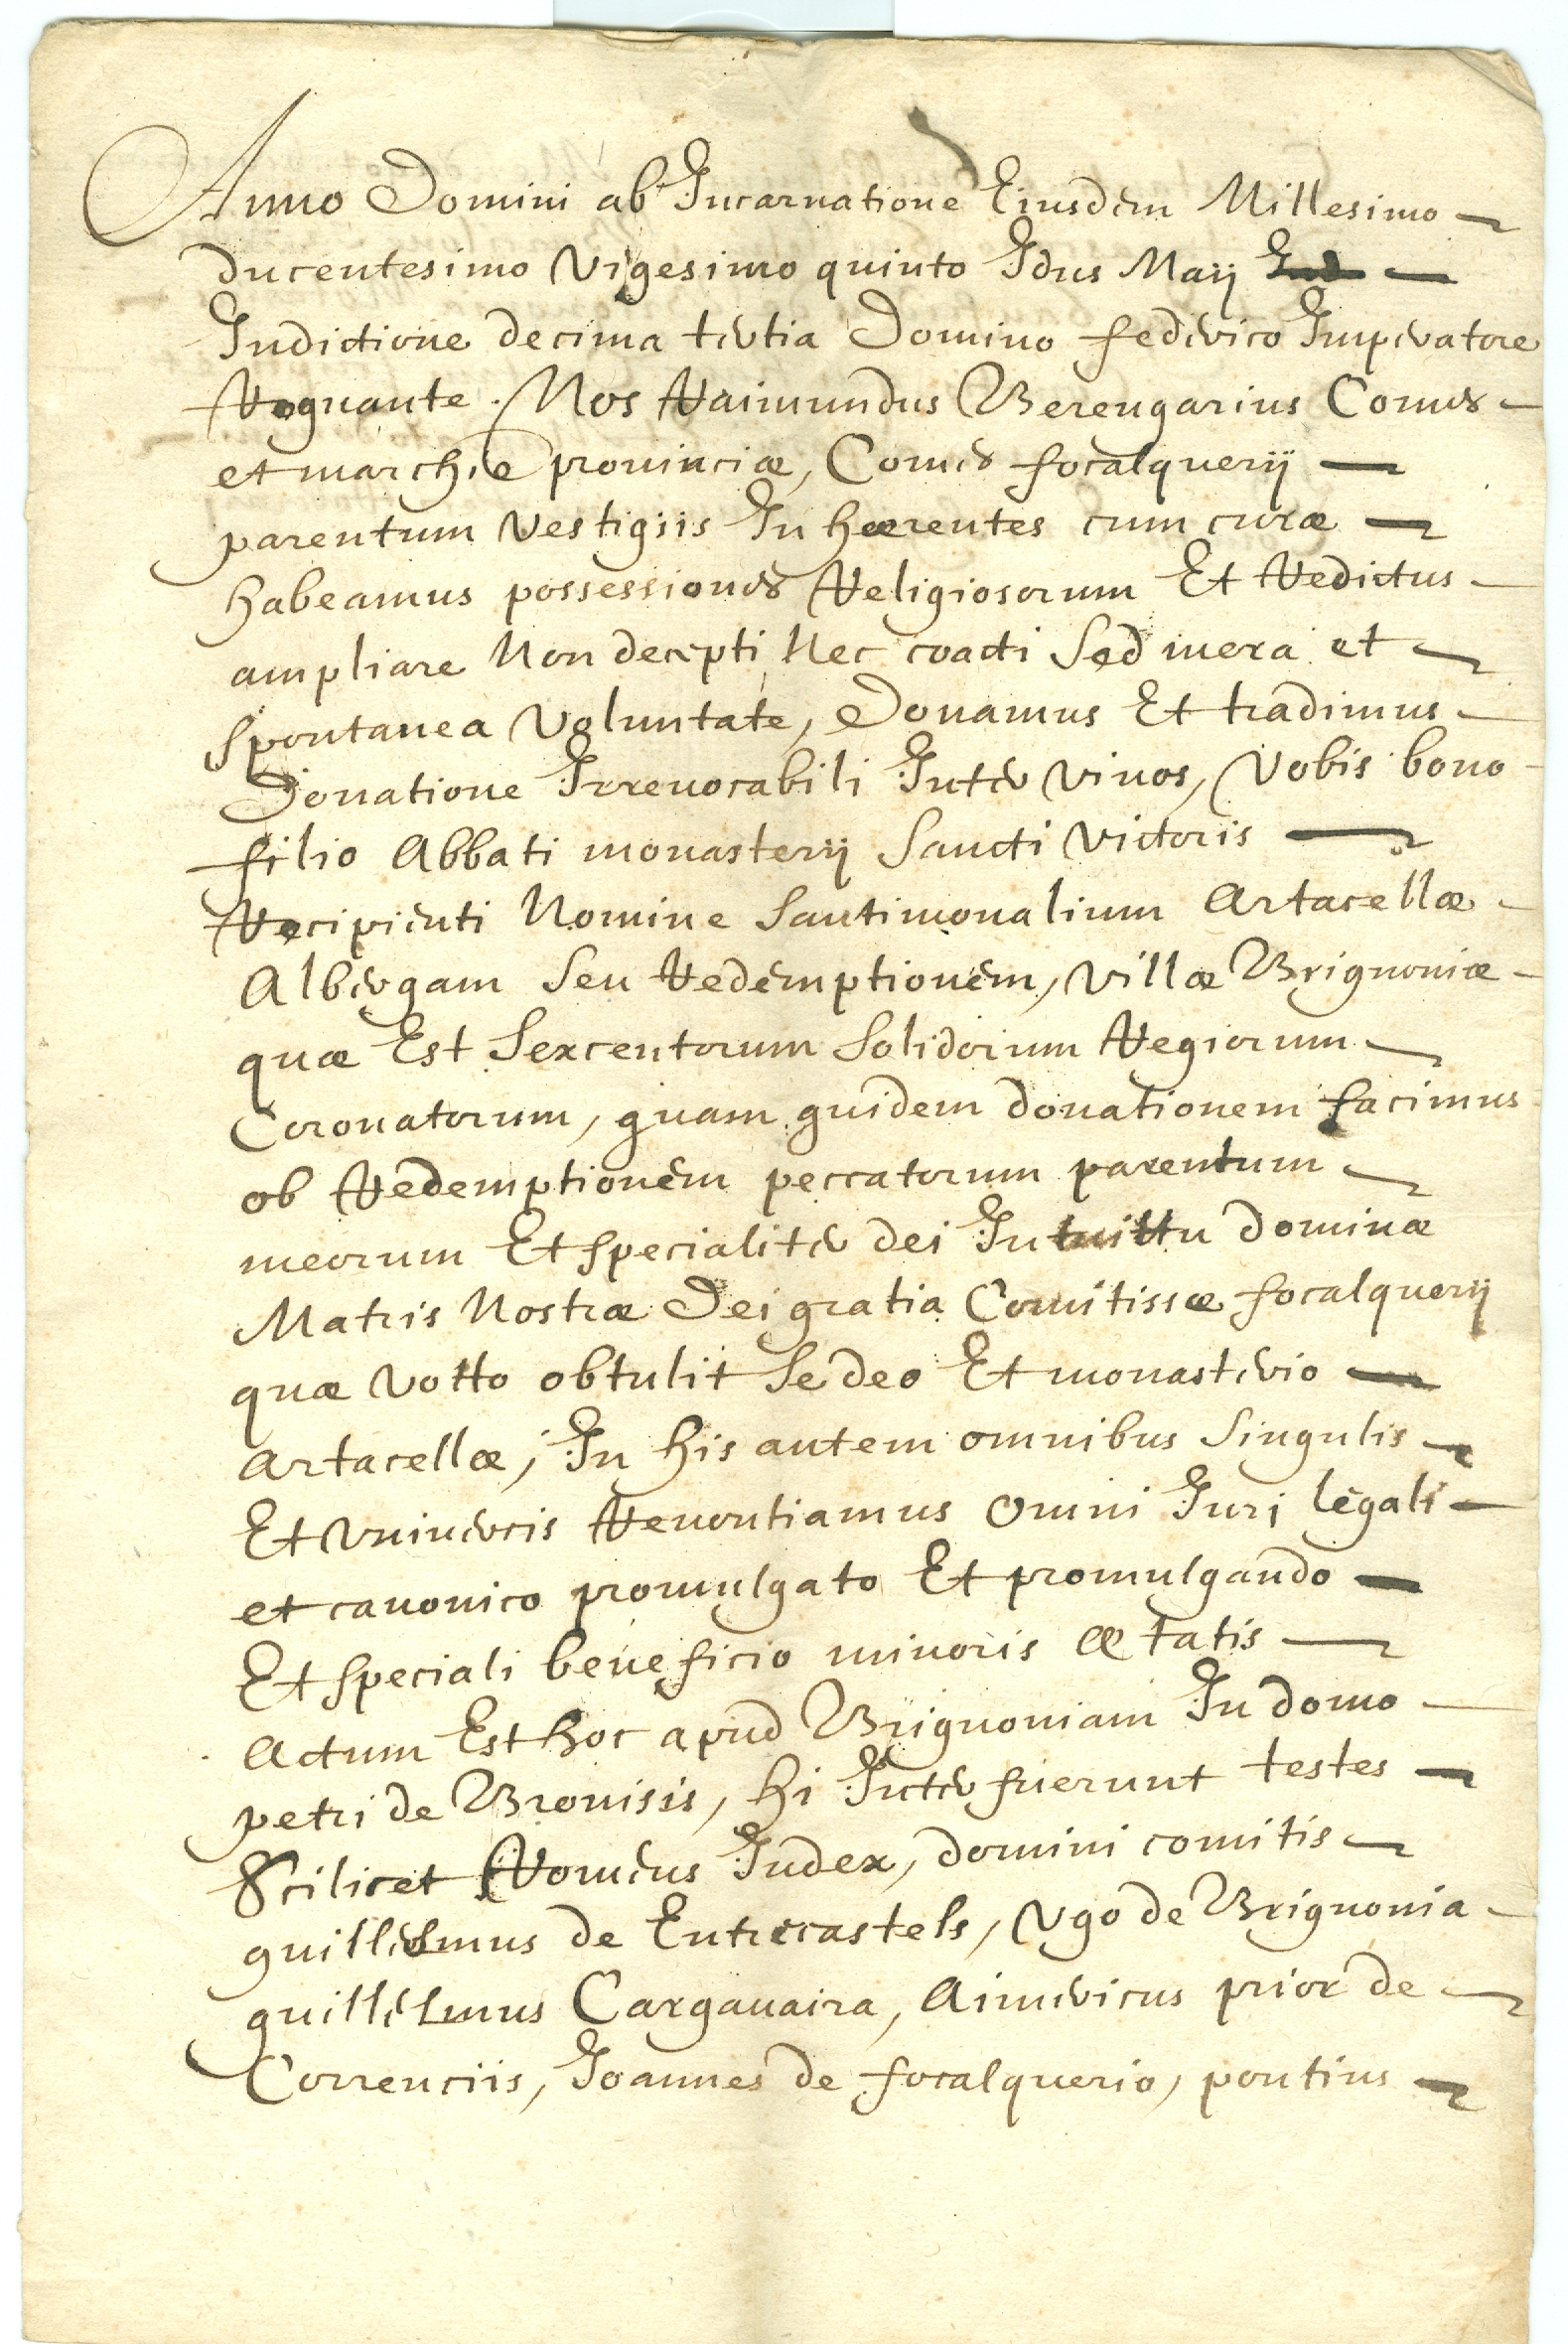 Anno Domini ab Incarnatione Eiusdem Millesimo
ducentesimo Vigesimo quinto Idus Maij Ind
Indictione decima tertia Domino federico Imperatore
Regnante. Nos Raimundus Berengarius Comes
et marchie prouinciæ, Comes focalquerij
parentum Vestigiis In hærentes cum curæ
habeamus possessiones Religiosorum Et Redictus
ampliare Non decepti Nec coacti Sed mera et
Spontanea Voluntate, Donamus Et tradimus
Donatione Irreuocabili Inter Viuos, Vobis bono
filio Abbati monasterij Sancti Victoris
Recipienti Nomine Santimonalium Artacellæ
Albergam Seu Redemptionem, Villæ Brignoniæ
quæ Est Sexcentorum Solidorum Regiorum
Coronatorum, quam quidem donationem facimus
ob Redemptionem peccatorum parentum
meorum Et specialiter dei Intuittu dominæ
Matris Nostræ Dei gratia Comitissæ focalquerij
quæ Votto obtulit Se deo Et monasterio
Artacellæ, In his autem omnibus Singulis
Et Vniuercis Renontiamus Omni Iuri legali
et canonico promulgato Et promulgando
Et speciali beneficio minoris ætatis
Actum Est hoc apud Brignoniam In domo
petri de Brouisis, hi Inter fuerunt testes
Scilicet Romeus Iudex, domini comitis
guillelmus de Entrecastels, Vgo de Brignonia
guillelmus Cargauaira, Aimericus prior de
Correnciis, Ioannes de focalquerio, pontius